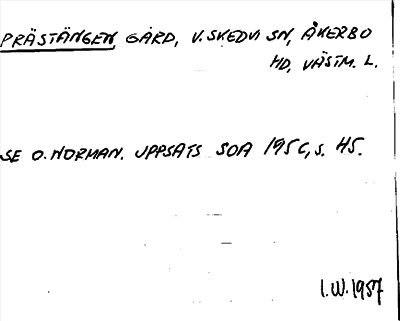 PRÄSTÄNGEN, GÅRD, V. SKEDVI SN, ÅKERBO
HD, VÄSTM. L.
SE O. NORMAN. UPPSATS SOA 1956, S. 45.
I.W. 1957